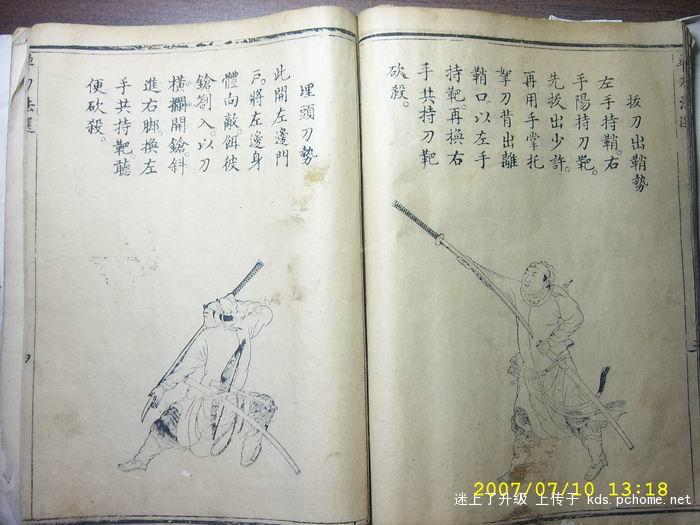 單刀法選
拔刀出鞘勢
左手持鞘。右
手陽持刀靶。
先拔出少許。
再用手掌托
挐刀背出離
鞘口。以左手
持靶。再換右
手共持刀靶
砍殺。
埋頭刀勢
此開左邊門
戶。將左邊身
體向敵。餌彼
鎗劄入。以刀
橫攔開鎗。斜
進右脚。換左
手共持靶。聽
便砍殺。
單刀法選
2007/07/10 13:18
迷上了升级 上传于 kds.pchome.net